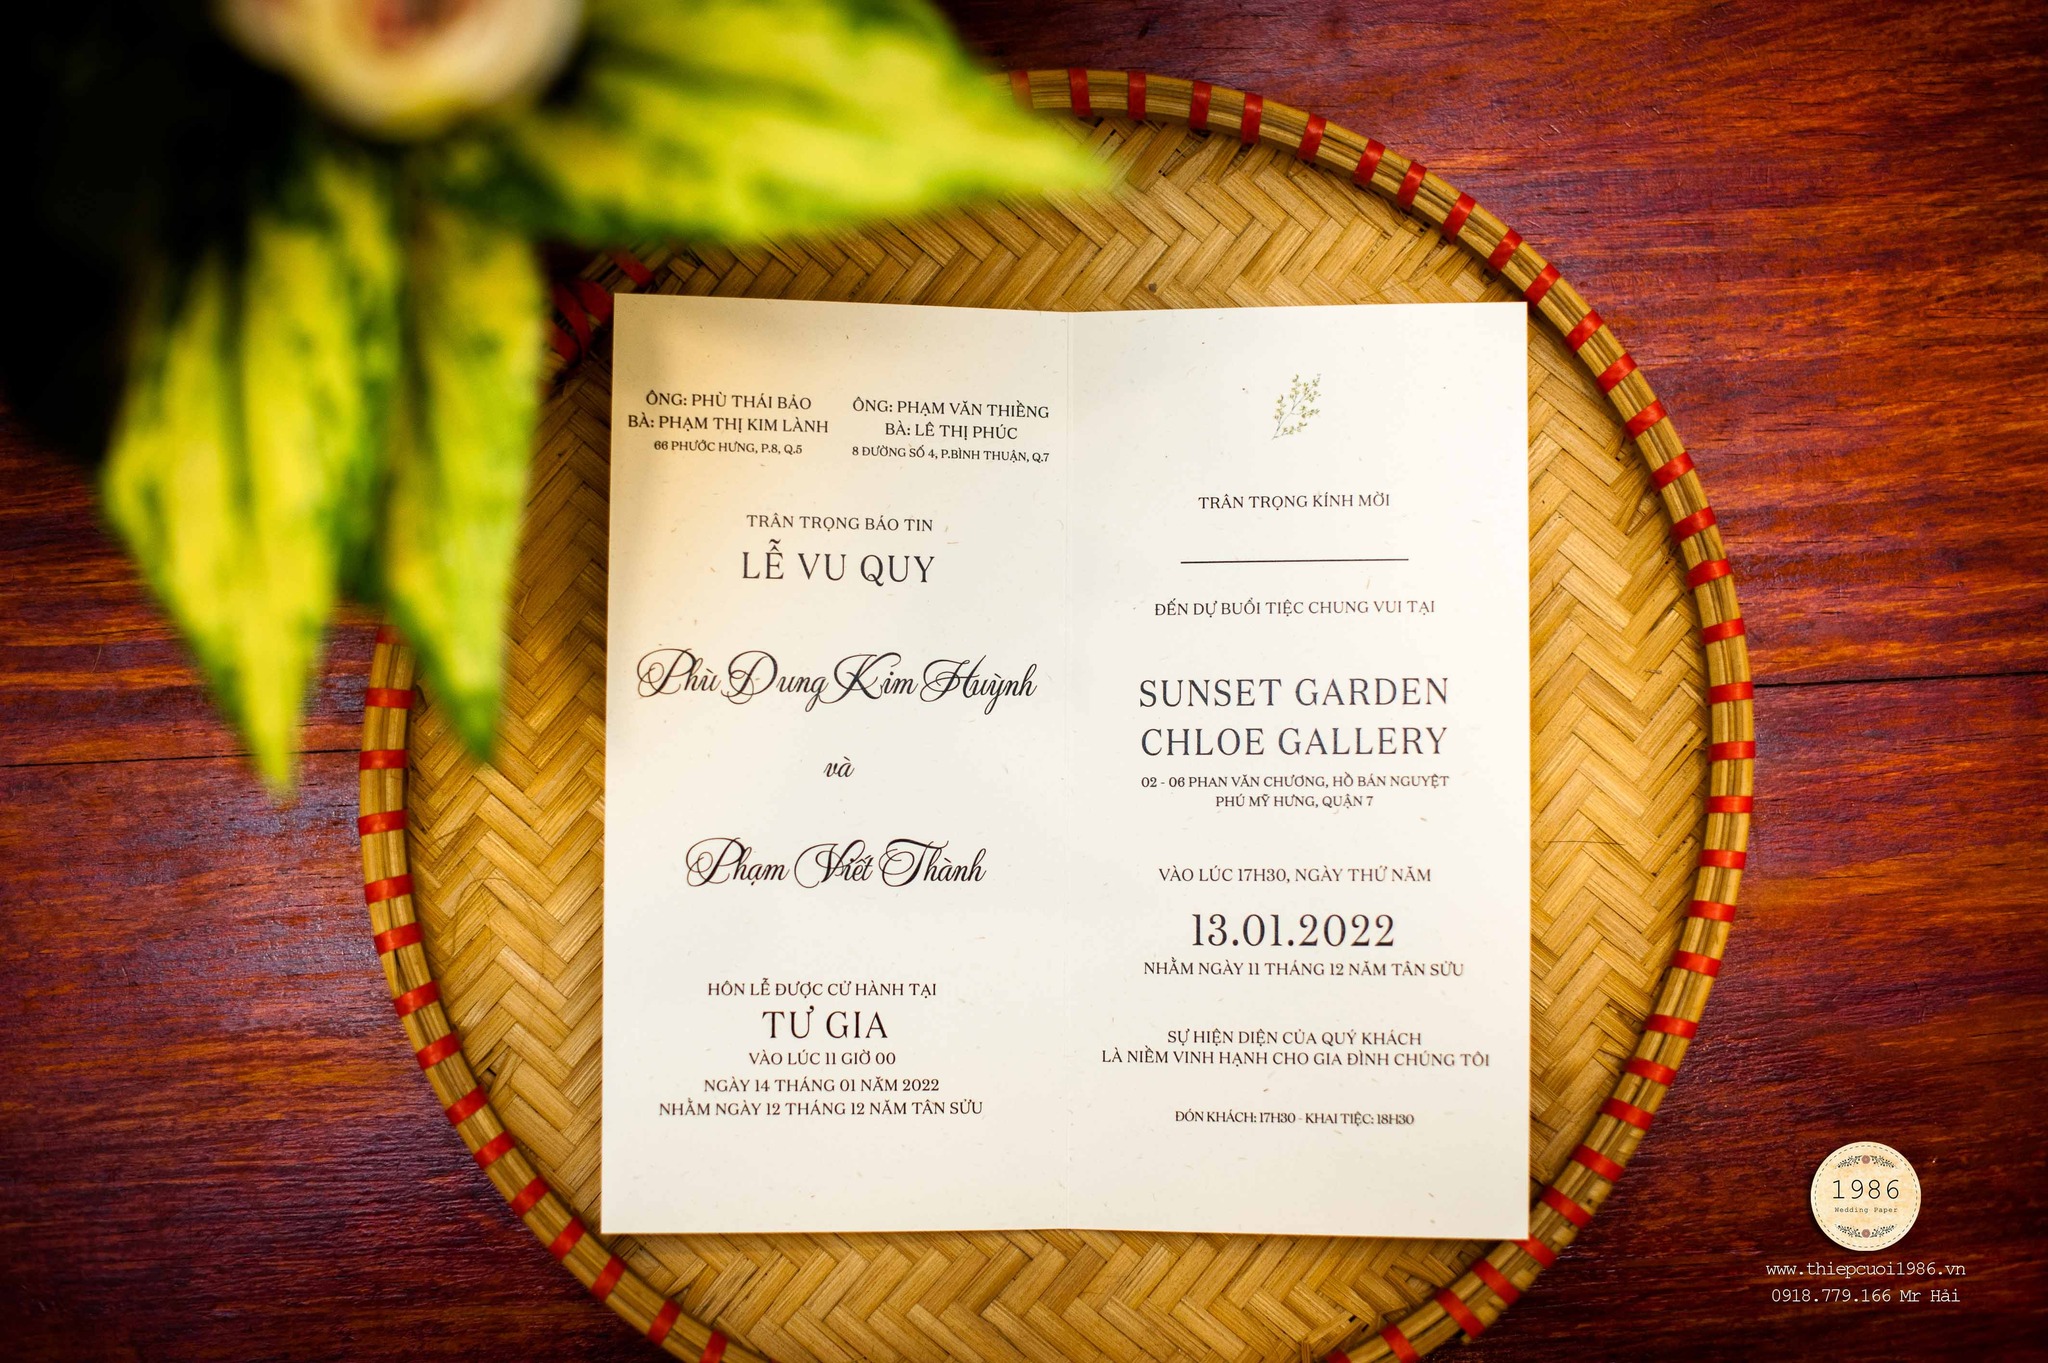 ÔNG: PHÙ THÁI BẢO
BÀ: PHẠM THỊ KIM LÀNH
66 PHƯỚC HƯNG, P.8, Q.5
ÔNG: PHẠM VĂN THIỀNG
BÀ: LÊ THỊ PHÚC
8 ĐƯỜNG SỐ 4, P.BÌNH THUẬN, Q.7
TRÂN TRỌNG BÁO TIN
LỄ VU QUY
Phù Dung Kim Huỳnh
và
Phạm Viết Thành
HÔN LỄ ĐƯỢC CỬ HÀNH TẠI
TƯ GIA
VÀO LÚC 11 GIỜ 00
NGÀY 14 THÁNG 01 NĂM 2022
NHẰM NGÀY 12 THÁNG 12 NĂM TÂN SỬU
TRÂN TRỌNG KÍNH MỜI
ĐẾN DỰ BUỔI TIỆC CHUNG VUI TẠI
SUNSET GARDEN
CHLOE GALLERY
02 - 06 PHAN VĂN CHƯƠNG, HỒ BÁN NGUYỆT
PHÚ MỸ HƯNG, QUẬN 7
VÀO LÚC 17H30, NGÀY THỨ NĂM
13.01.2022
NHẰM NGÀY 11 THÁNG 12 NĂM TÂN SỬU
SỰ HIỆN DIỆN CỦA QUÝ KHÁCH
LÀ NIỀM VINH HẠNH CHO GIA ĐÌNH CHÚNG TÔI
ĐÓN KHÁCH: 17H30 - KHAI TIỆC: 18H30
1986
Wedding Paper
www.thiepcuoi1986.vn
0918.779.166 Mr Hải